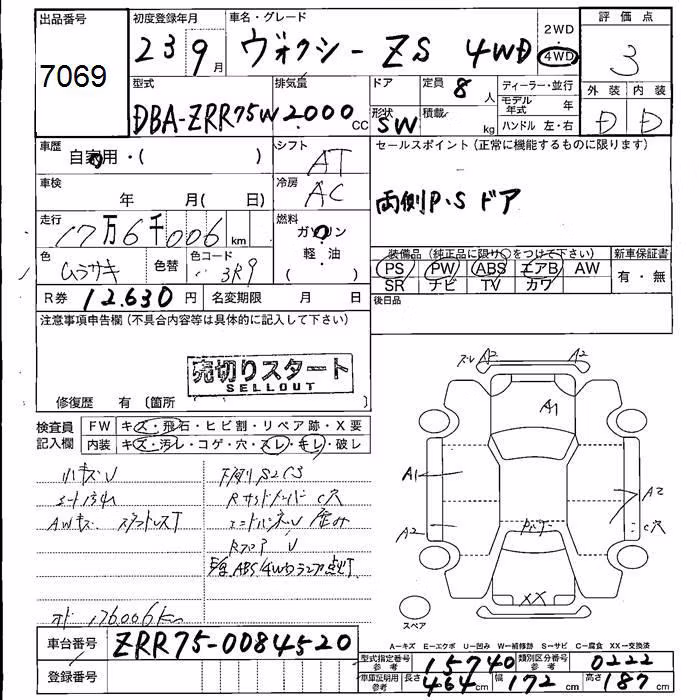 出品番号
7069
初度登録年月
23 9月
車名・グレード
ヴォクシー ZS 4WD
2WD
4WD
評価点
3
外装 内装
D D
型式
DBA-ZRR75W
排気量
2.000cc
ドア
定員 8人
形状
SW
積載 kg
ディーラー・並行
モデル年式 年
ハンドル 左・右
車歴
自家用・( )
シフト
AT
セールスポイント(正常に機能するものに限ります)
両側P.Sドア
車検
年 月( 日)
冷房
AC
走行
17万6千006km
燃料
ガソリン
軽・油
( )
色
ムラサキ
色替
色コード
3R9
装備品(純正品に限り○をつけて下さい)
PS PW ABS エアB AW
SR ナビ TV カワ
新車保証書
有・無
R券 12.630円
名変期限 月 日
後日品
注意事項申告欄(不具合内容等は具体的に記入して下さい)
売切りスタート
SELLOUT
修復歴 有 〔箇所 〕
検査員記入欄
FW キズ・飛石・ヒビ割・リペア跡・X要
内装 キズ・汚レ・コゲ・穴・スレ・キレ・破レ
小キズU
AWキズ スタットレスT
下廻りS2C3
RフロアU
ABS 4WDランプ点灯
176006km
A2
A2
A1
A1
A2
A2
C穴
XX
スペア
A-キズ E-エクボ U-凹み W-補修跡 S-サビ C-腐食 XX-交換済
車台番号 ZRR75-0084520
登録番号
型式指定番号参考 15740
類別区分番号参考 0222
車庫証明用参考 長さ 464cm 幅 172cm 高さ 187cm